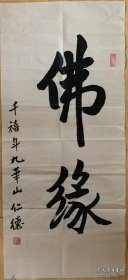 佛緣
千禧年九華山仁德